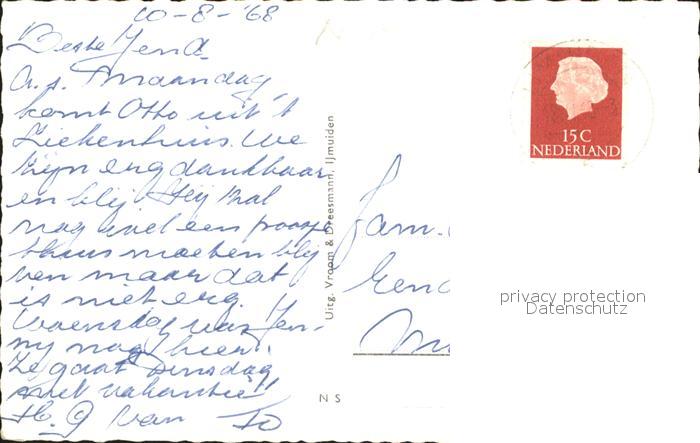 10-8-'68
Beste Jend.
A.s. Maandag
komt Otto uit 't
Ziekenhuis. We
zijn erg dankbaar
en blij. Hij zal
nog wel een poosje
thuis moeten blij
ven maar dat
is niet erg.
Woensdag was Jen-
ny nog hier.
Ze gaat Dinsdag
met vakantie!
H. G van To
Uitg. Vroom & Dreesmann, IJmuiden
N S
15 C
NEDERLAND
Fam.
privacy protection
Datenschutz